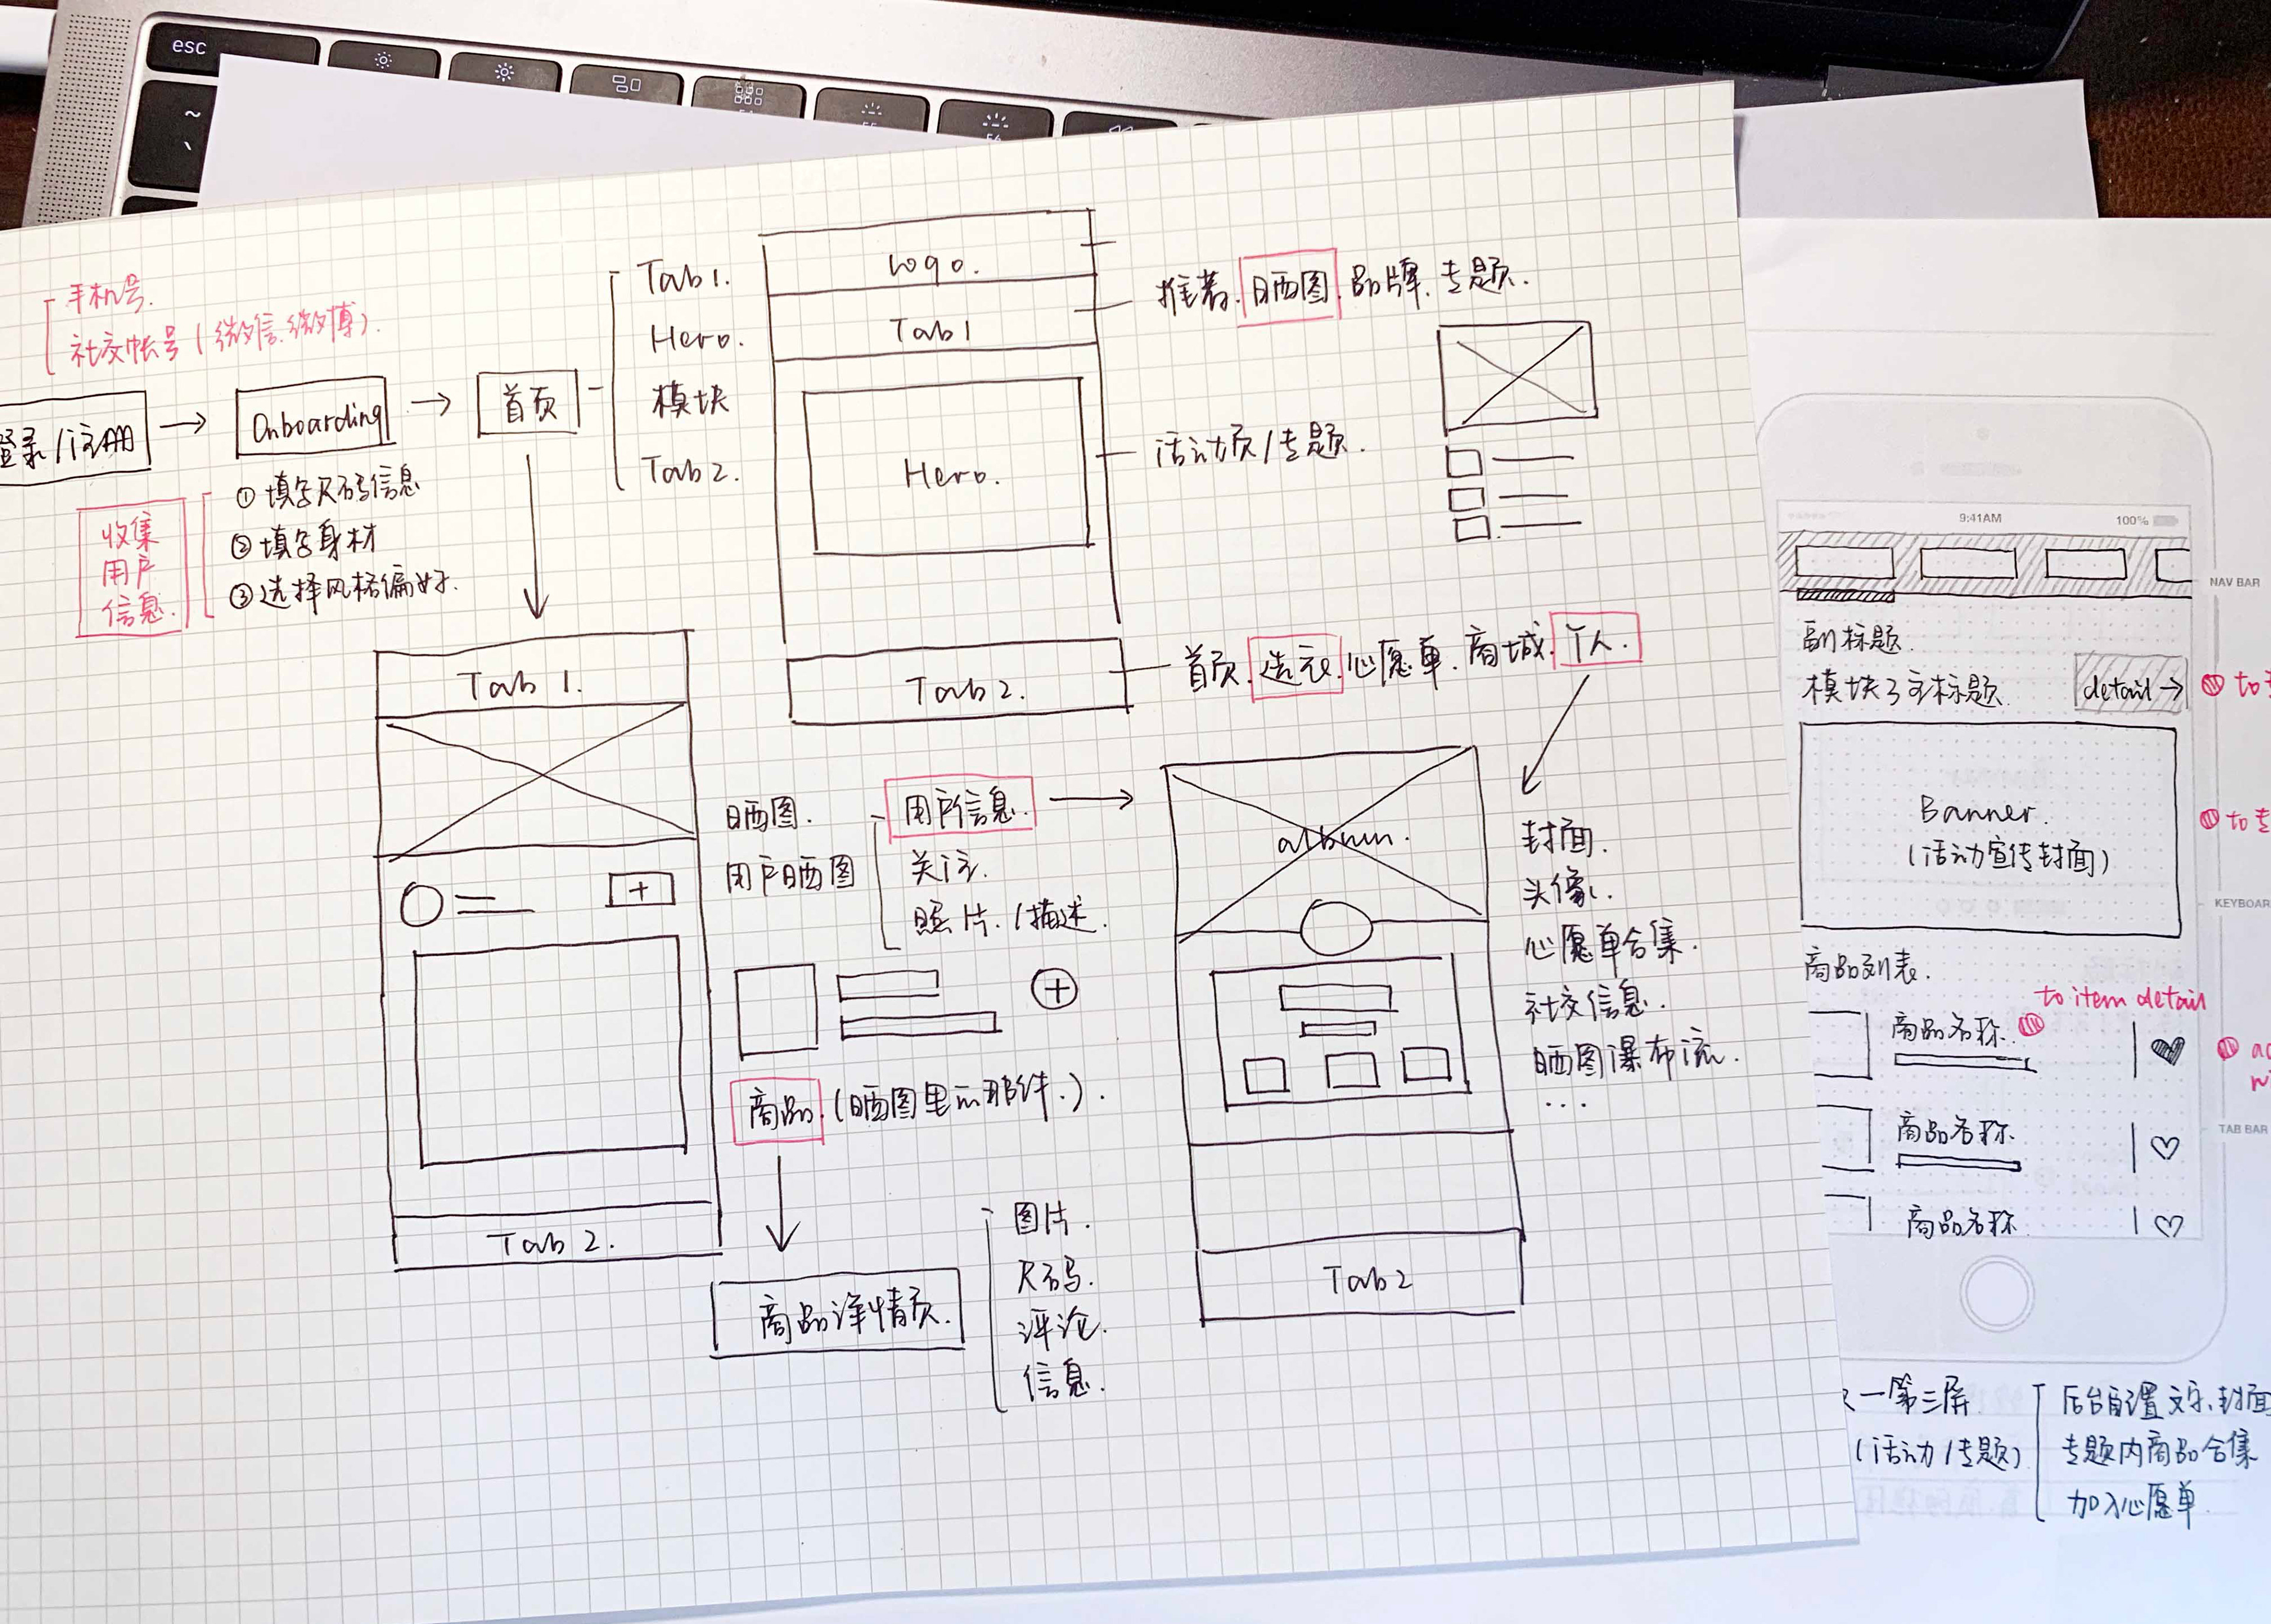 esc
~
、
F5
F6
手机号.
社交帐号(微信.微博).
登录/注册
Onboarding
首页
收集
用户
信息.
①填写尺码信息
②填写身材
③选择风格偏好.
Tab1.
Hero.
模块
Tab2.
Logo.
Tab1
Hero.
Tab2.
推荐.晒图.品牌.专题.
活动页/专题.
首页.选衣.心愿单.商城.个人.
Tab 1.
Tab 2.
晒图.
用户晒图
用户信息.
关注.
照片./描述.
商品.(晒图里的那件.).
商品详情页.
图片.
尺码.
评论.
信息.
album.
Tab2
封面.
头像.
心愿单合集.
社交信息.
晒图瀑布流.
...
9:41AM
100%
NAV BAR
副标题.
模块了主标题.
detail→
to
Banner.
(活动宣传封面)
to 专
KEYBOAR
商品列表.
to item detail
商品名称.
商品名称.
TAB BAR
商品名称.
一第三屏.
(活动/专题)
后台配置文字.封面
专题内商品合集
加入心愿单.